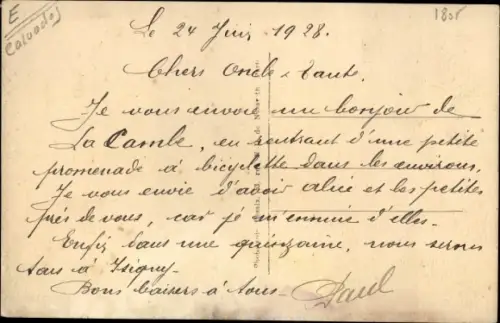 E
Calvados
1805
Le 24 Juin 1928.
Chers Oncle & Tante.
Je vous envoie un bonjour de
La Cambe, en rentrant d'une petite
promenade à bicyclette dans les environs.
Je vous envie d'avoir alice et les petites
près de vous, car je m'ennuie d'elles.
Enfin dans une quinzaine, nous serons
tous à Isigny.
Bons baisers à tous.
Paul